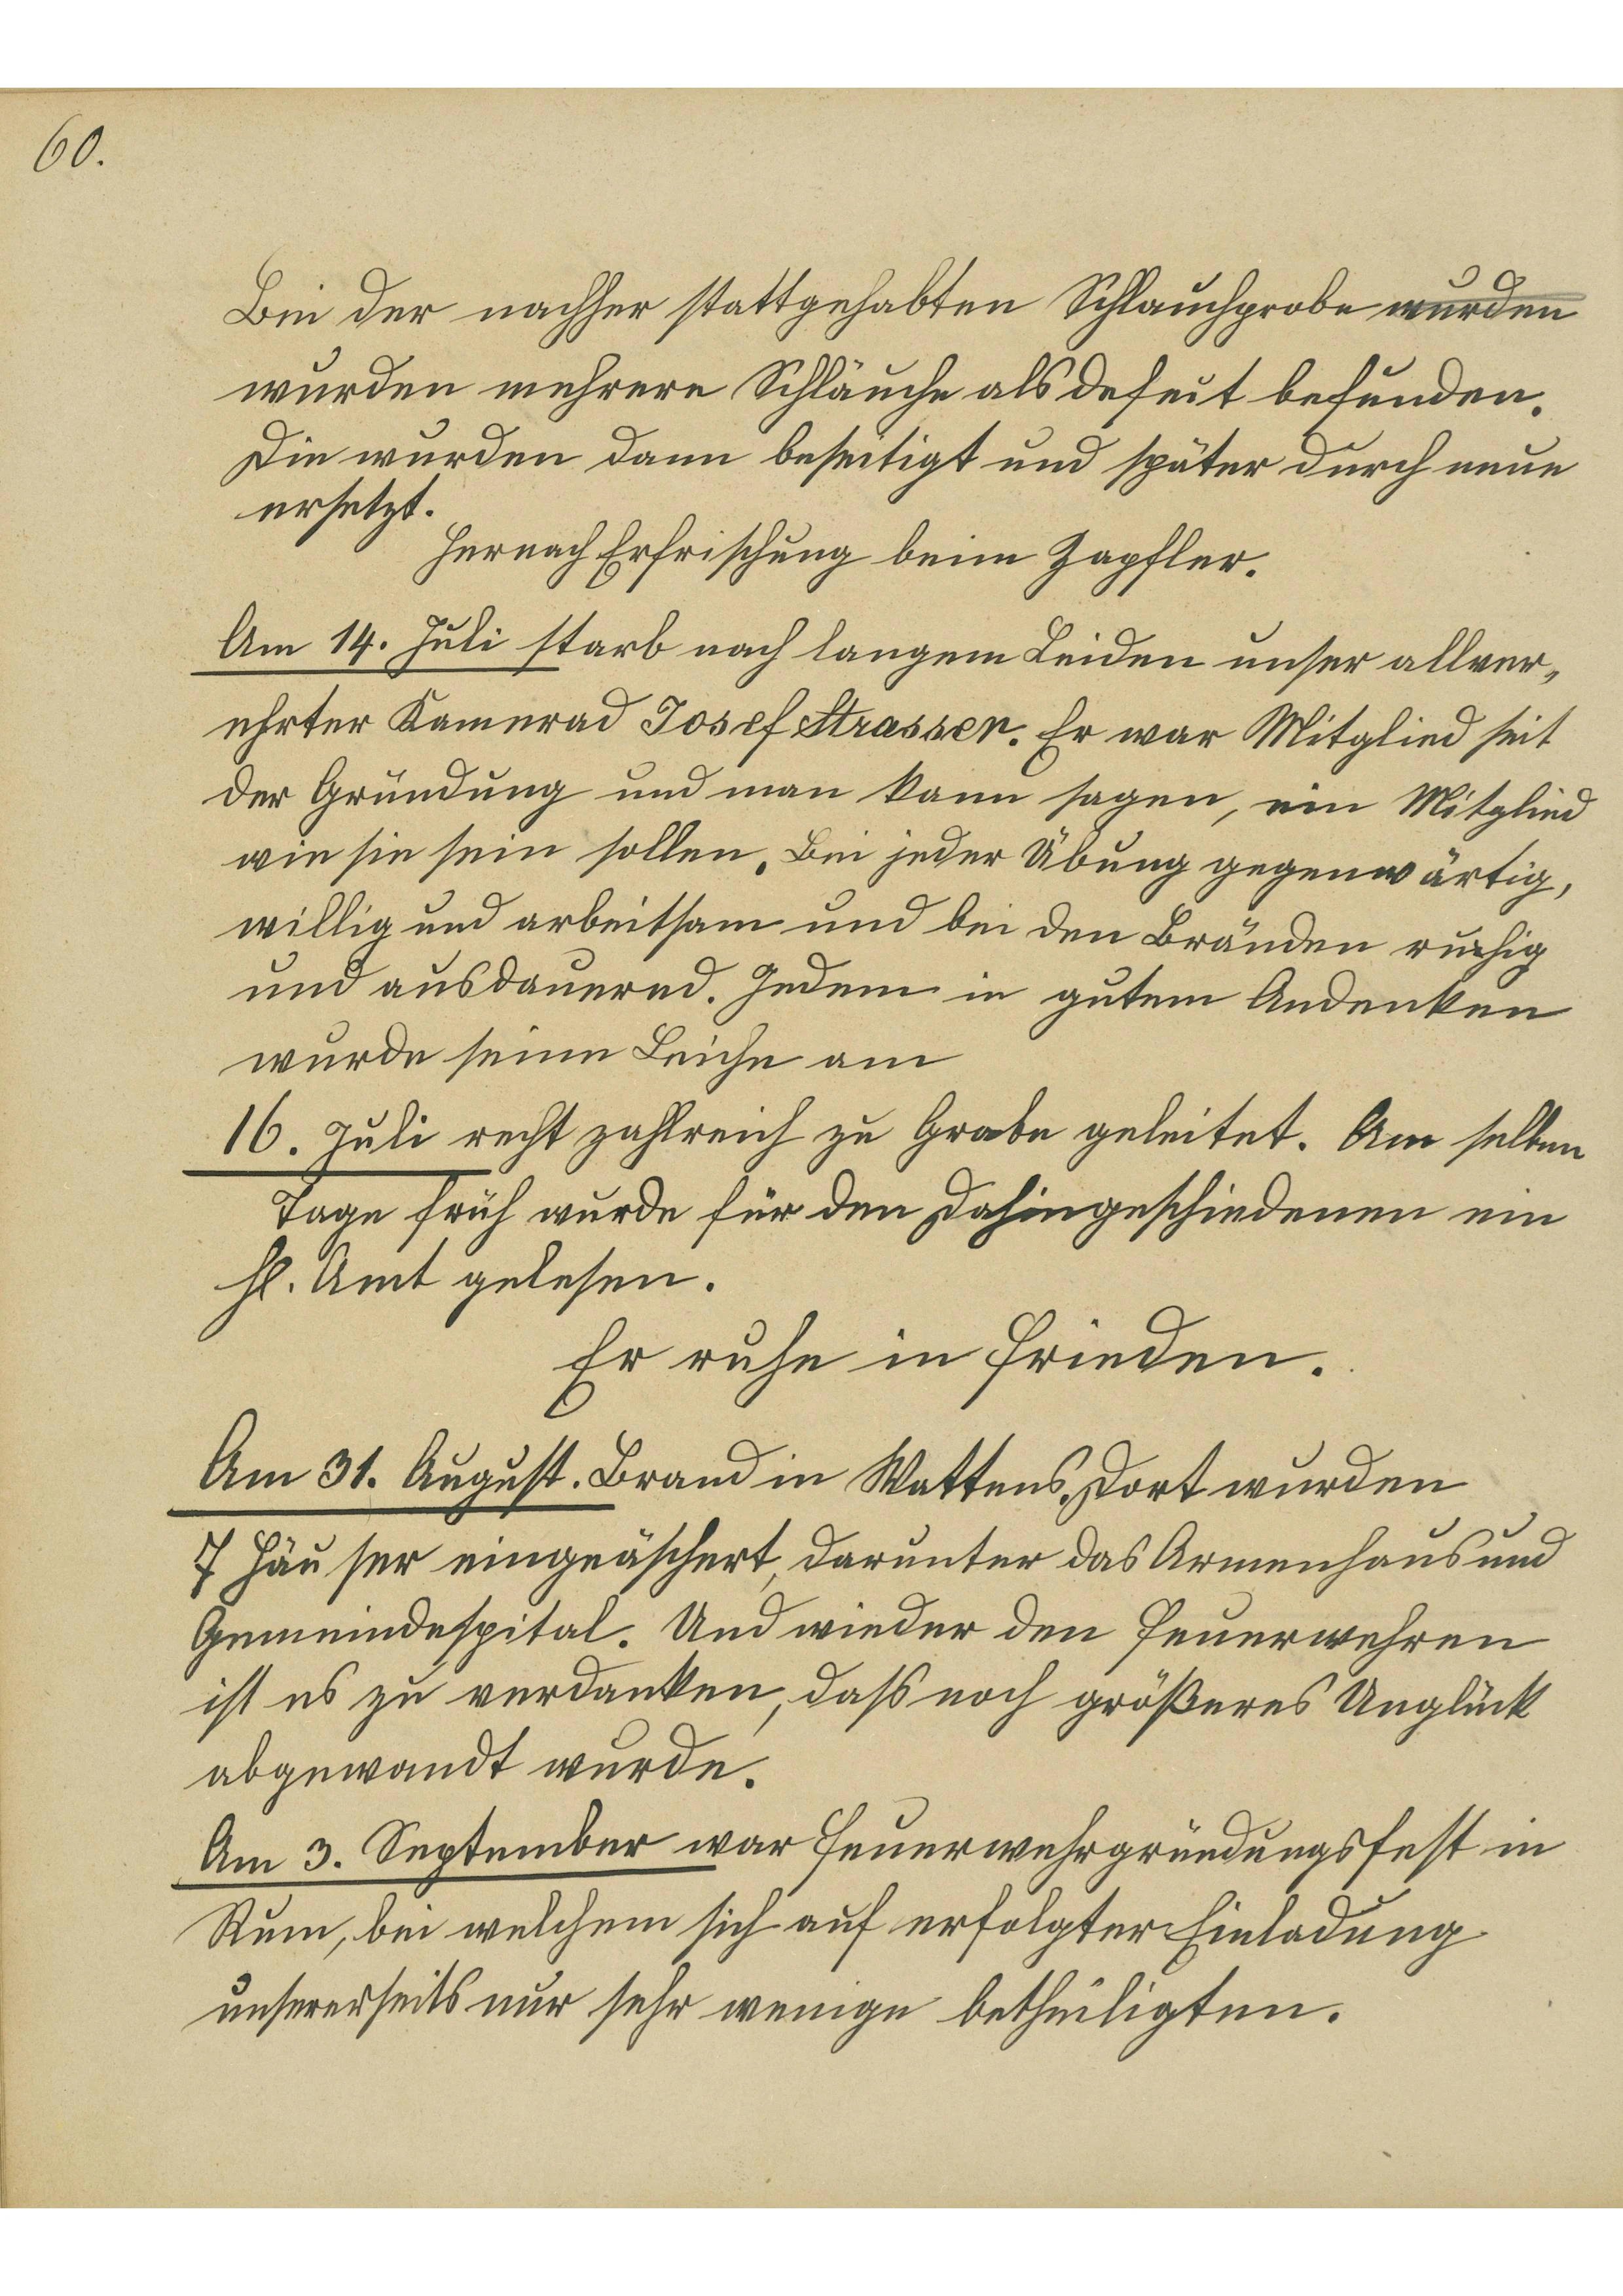 60.
Bei der nachher stattgehabten Schlauchprobe wurden
wurden mehrere Schläuche als defeit befunden.
Die wurden dann beseitigt und später durch neue
ersetzt.
Hernach Erfrischung beim Zapfler.
Am 14. Juli starb nach langem Leiden unser allver„
ehrter Kamerad Josef Strasser. Er war Mitglied seit
der Gründung und man kann sagen, ein Mitglied
wie sie sein sollen. Bei jeder Übung gegenwärtig,
willig und arbeitsam und bei den Bränden ruhig
und ausdauernd. Jedem in gutem Andenken
wurde seine Leiche am
16. Juli recht zahlreich zu Grabe geleitet. Am selben
Tage früh wurde für den Dahingeschiedenen ein
hl. Amt gelesen.
Er ruhe in Frieden.
Am 31. August. Brand in Wattens. Dort wurden
7 Häuser eingeäschert, darunter das Armenhaus und
Gemeindespital. Und wieder den Feuerwehren
ist es zu verdanken, dass noch größeres Unglück
abgewandt wurde.
Am 3. September war Feuerwehrgründungsfest in
Rum, bei welchem sich auf erfolgter Einladung
unsererseits nur sehr wenige betheiligten.